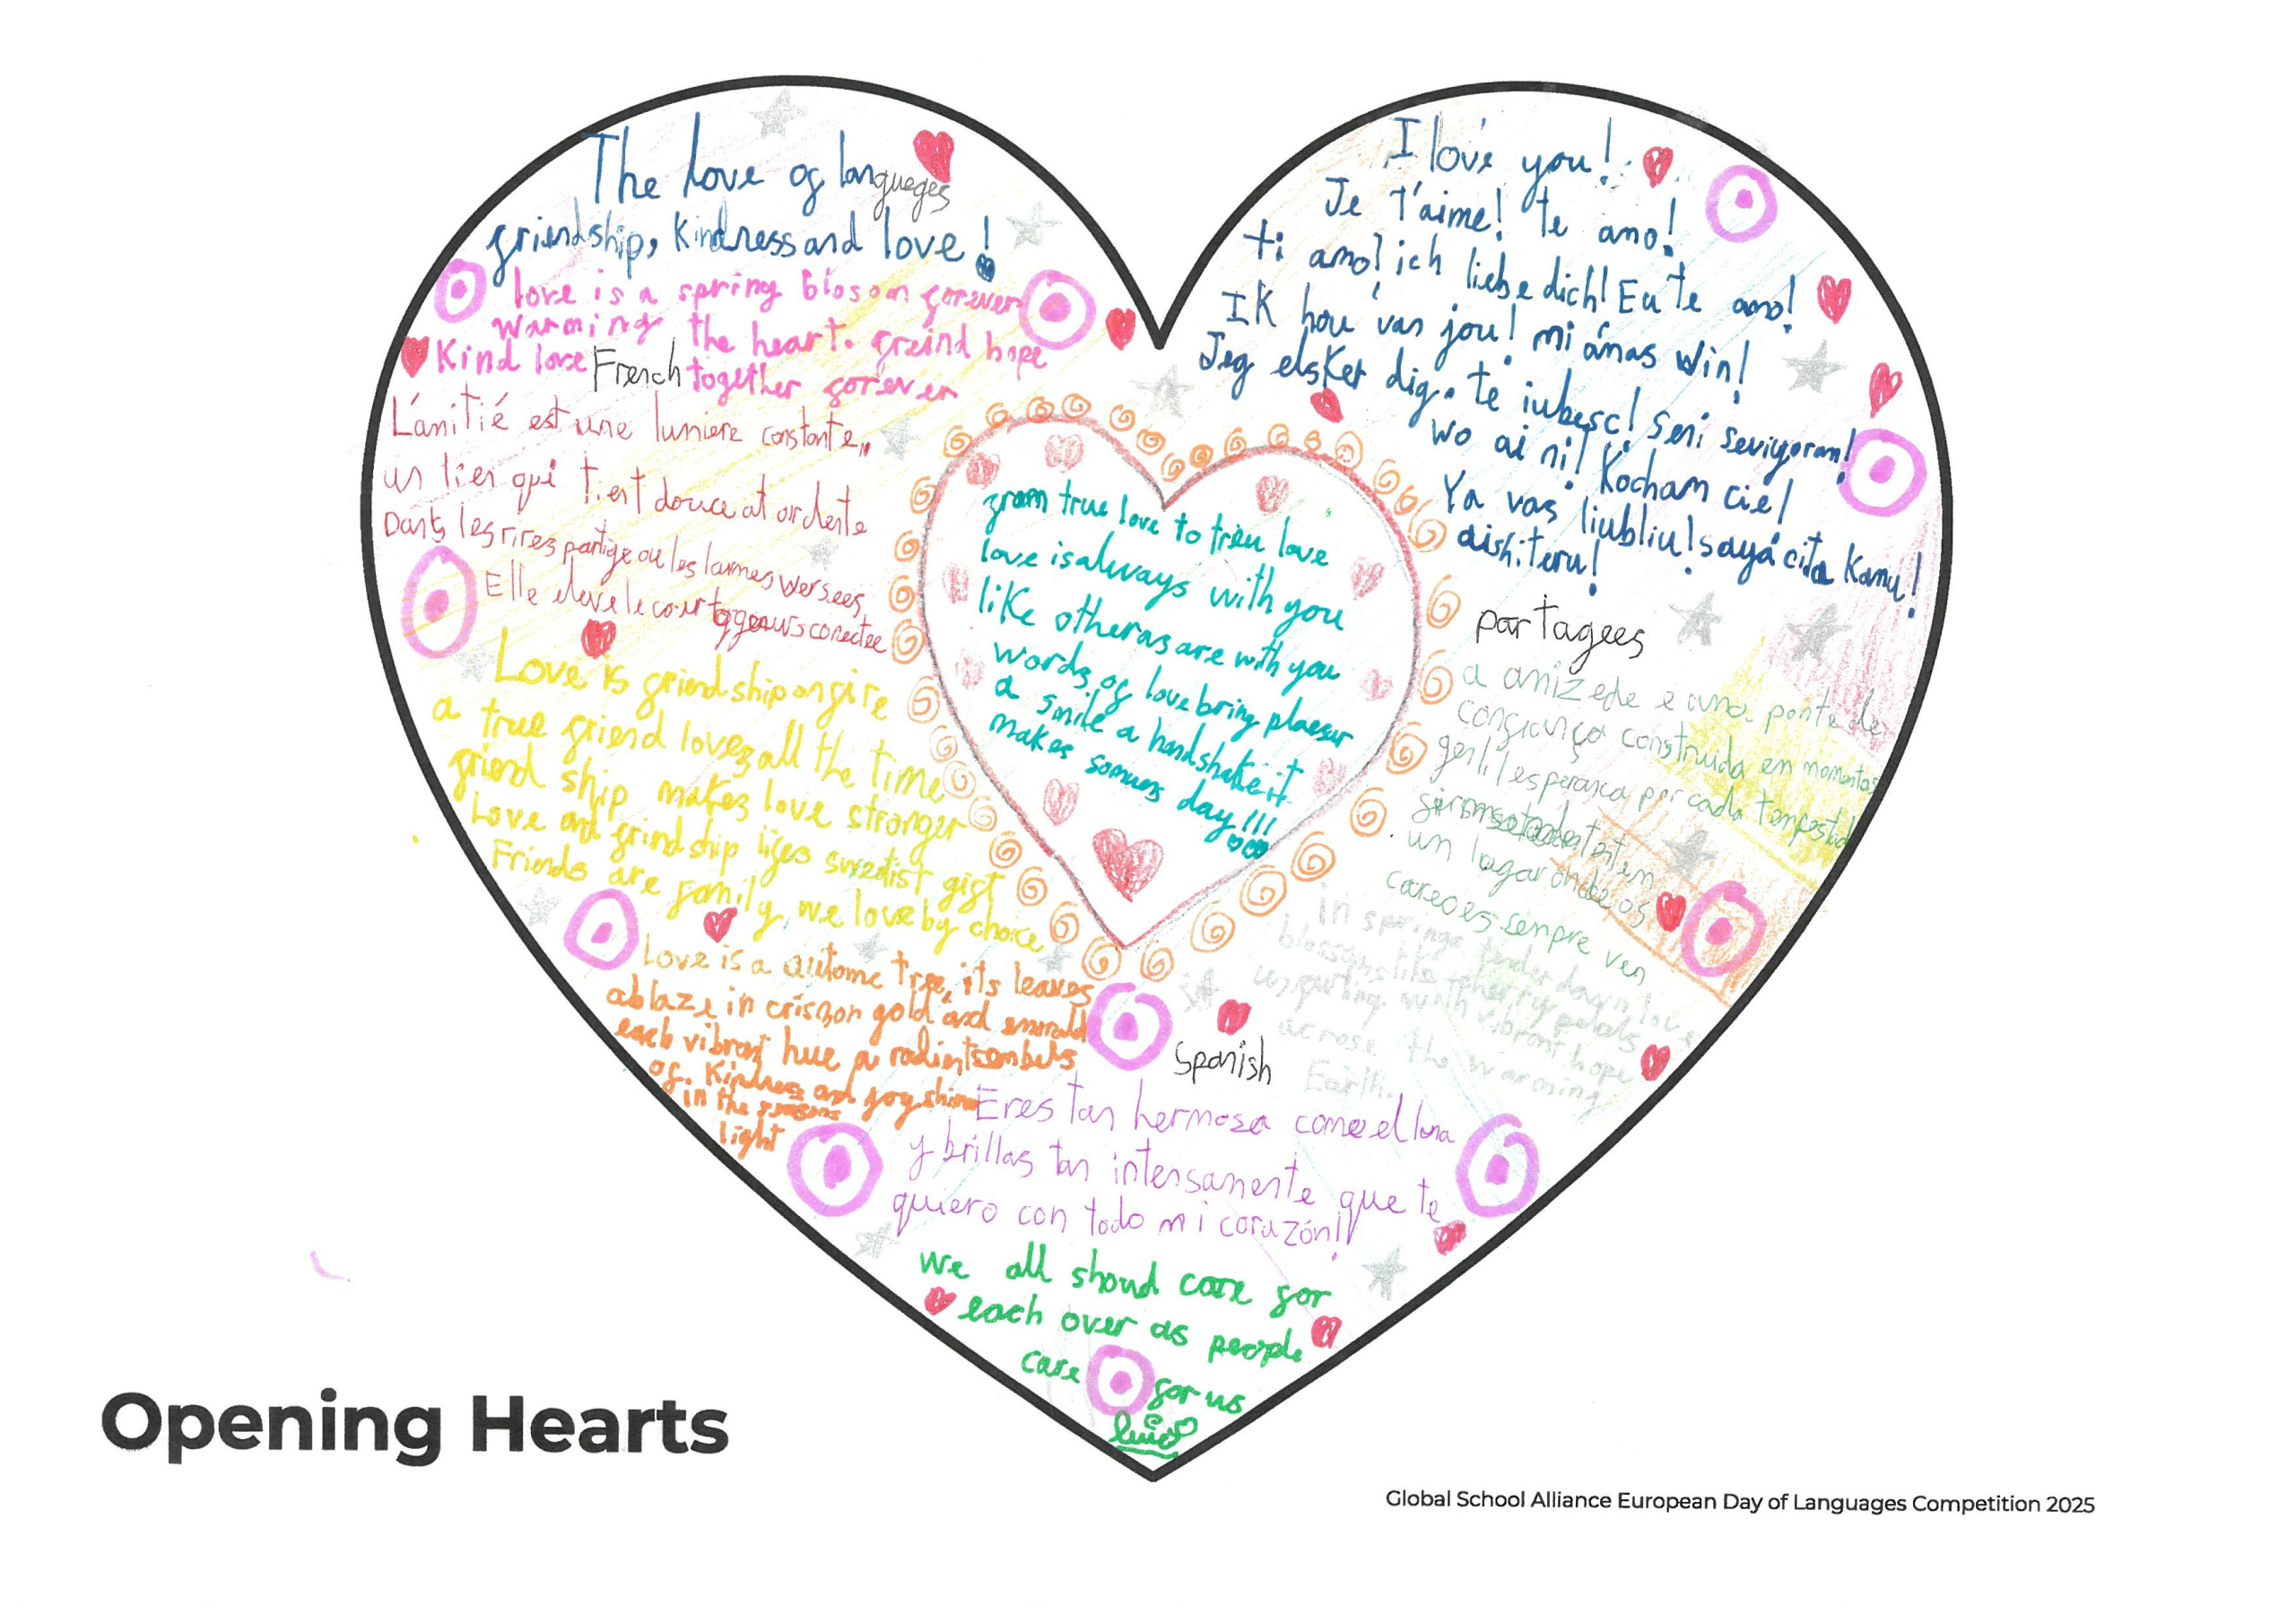 The Love of languages
friendship, Kindness and love!
love is a spring blosom forever
warming the heart. freind hope
Kind love together forever
French
L'amitié est une lumiere constante,,
un lien qui
Dants les rires partige ou les larmes versees,
Elle eleve le
Love is friendship on fire
a true friend loves all the time
friend ship makes love stronger
Love and frindship lifes swetist gift
Friends are family, we love by choice
Love is a autome tree, its leaves
ablaze in crismon gold and emerald
each vibrant hue a radint
of. Kindness and joy
in the seasons
light
I love you!
Je t'aime! te amo!
ti amo! ich liebe dich! Eu te amo!
IK hou van jou! mi amas win!
Jeg elsket dig. te iubesc! Seni seviyoram!
wo ai ni! Kocham cie!
Ya vas liubliu! saya cita Kamu!
aishiteru!
from true love to treu love
love is always with you
like otheras are with you
words of love bring plaesur
a smile a handshake it
makes somuns day!!!
partagees
a amizede e uma ponte de
confiança construida en momentos
gentil esperanca por cada tempestid
un lugar onde os
sempre ven
In springs tender dawn love
blossoms like cherry petals
unfurling with vibrant hope
across the warming
Earth.
Spanish
Eres tan hermosa como el luna
y brillas tan intensamente que te
quiero con todo mi corazón!!
we all shoud care for
each over as people
care for us
Opening Hearts
Global School Alliance European Day of Languages Competition 2025